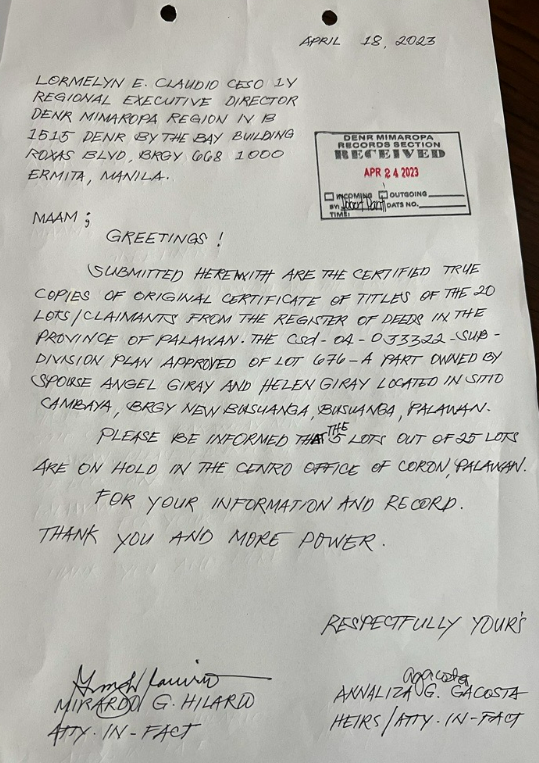 APRIL 18, 2023
LORMELYN E. CLAUDIO CESO IV
REGIONAL EXECUTIVE DIRECTOR
DENR MIMAROPA REGION IV B
1515 DENR BY THE BAY BUILDING
ROXAS BLVD, BRGY 668 1000
ERMITA, MANILA.
DENR MIMAROPA
RECORDS SECTION
RECEIVED
APR 24 2023
INCOMING OUTGOING
BY: DATS NO.
TIME:
MAAM ;
GREETINGS !
SUBMITTED HEREWITH ARE THE CERTIFIED TRUE
COPIES OF ORIGINAL CERTIFICATE OF TITLES OF THE 20
LOTS/CLAIMANTS FROM THE REGISTER OF DEEDS IN THE
PROVINCE OF PALAWAN. THE Csd-04-033322-SUB-
DIVISION PLAN APPROVED OF LOT 676-A PART OWNED BY
SPOUSE ANGEL GIRAY AND HELEN GIRAY LOCATED IN SITIO
CAMBAYA, BRGY NEW BUSUANGA, BUSUANGA, PALAWAN.
PLEASE BE INFORMED THE 5 LOTS OUT OF 25 LOTS
ARE ON HOLD IN THE CENRO OFFICE OF CORON, PALAWAN.
FOR YOUR INFORMATION AND RECORD.
THANK YOU AND MORE POWER.
RESPECTFULLY YOUR'S
MIRARDO G. HILARIO
ATTY-IN-FACT
agacosta
ANNALIZA G. GACOSTA
HEIRS/ATTY-IN-FACT